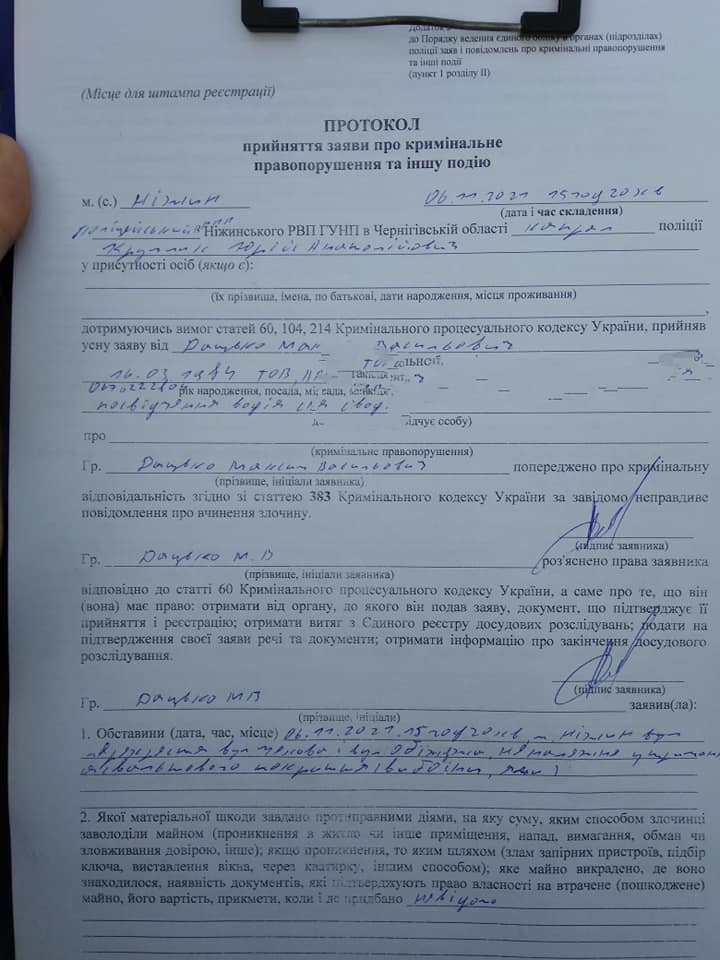 Додаток
до Порядку ведення єдиного обліку в органах (підрозділах)
поліції заяв і повідомлень про кримінальні правопорушення
та інші події
(пункт 1 розділу II)
(Місце для штампа реєстрації)
ПРОТОКОЛ
прийняття заяви про кримінальне
правопорушення та іншу подію
м. (с.) Ніжин 06.11.2021 15 год 20 хв
(дата і час складення)
Ніжинського РВП ГУНП в Чернігівській області капрал поліції
Юрій Анатолійович
у присутності осіб (якщо є):
(їх прізвища, імена, по батькові, дати народження, місця проживання)
дотримуючись вимог статей 60, 104, 214 Кримінального процесуального кодексу України, прийняв
усну заяву від Дацько Васильович
16.03.1984 ТОВ
рік народження, посада,
посвідчення водія
про
(кримінальне правопорушення)
Гр. Дацько Максим Васильович попереджено про кримінальну
(прізвище, ініціали заявника)
відповідальність згідно зі статтею 383 Кримінального кодексу України за завідомо неправдиве
повідомлення про вчинення злочину.
(підпис заявника)
Гр. Дацько М.В роз'яснено права заявника
(прізвище, ініціали заявника)
відповідно до статті 60 Кримінального процесуального кодексу України, а саме про те, що він
(вона) має право: отримати від органу, до якого він подав заяву, документ, що підтверджує її
прийняття і реєстрацію; отримати витяг з Єдиного реєстру досудових розслідувань; подати на
підтвердження своєї заяви речі та документи; отримати інформацію про закінчення досудового
розслідування.
(підпис заявника)
Гр. Дацько МВ заявив(ла):
(прізвище, ініціали)
1. Обставини (дата, час, місце) 06.11.2021 15 год 20 хв, м. Ніжин вул
перехрестя вул Чехова і вул Об'їжджа, неналежне утримання
асфальтового покриття (вибоїни, ями)
2. Якої матеріальної шкоди завдано протиправними діями, на яку суму, яким способом злочинці
заволоділи майном (проникнення в житло чи інше приміщення, напад, вимагання, обман чи
зловживання довірою, інше); якщо проникнення, то яким шляхом (злам запірних пристроїв, підбір
ключа, виставлення вікна, через кватирку, іншим способом); яке майно викрадено, де воно
знаходилося, наявність документів, які підтверджують право власності на втрачене (пошкоджене)
майно, його вартість, прикмети, коли і де придбано невідомо